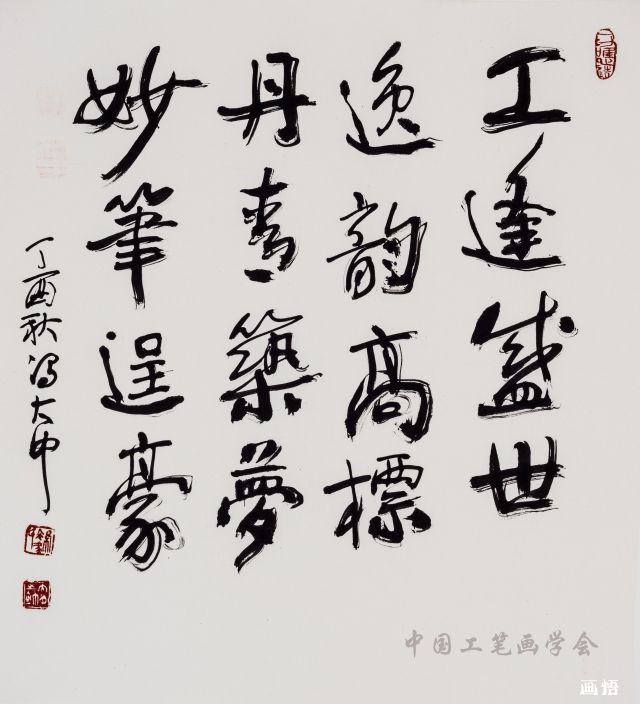 工逢盛世
逸韵高標
丹青築夢
妙筆逞豪
丁酉秋馮大中
中国工笔画学会
画悟